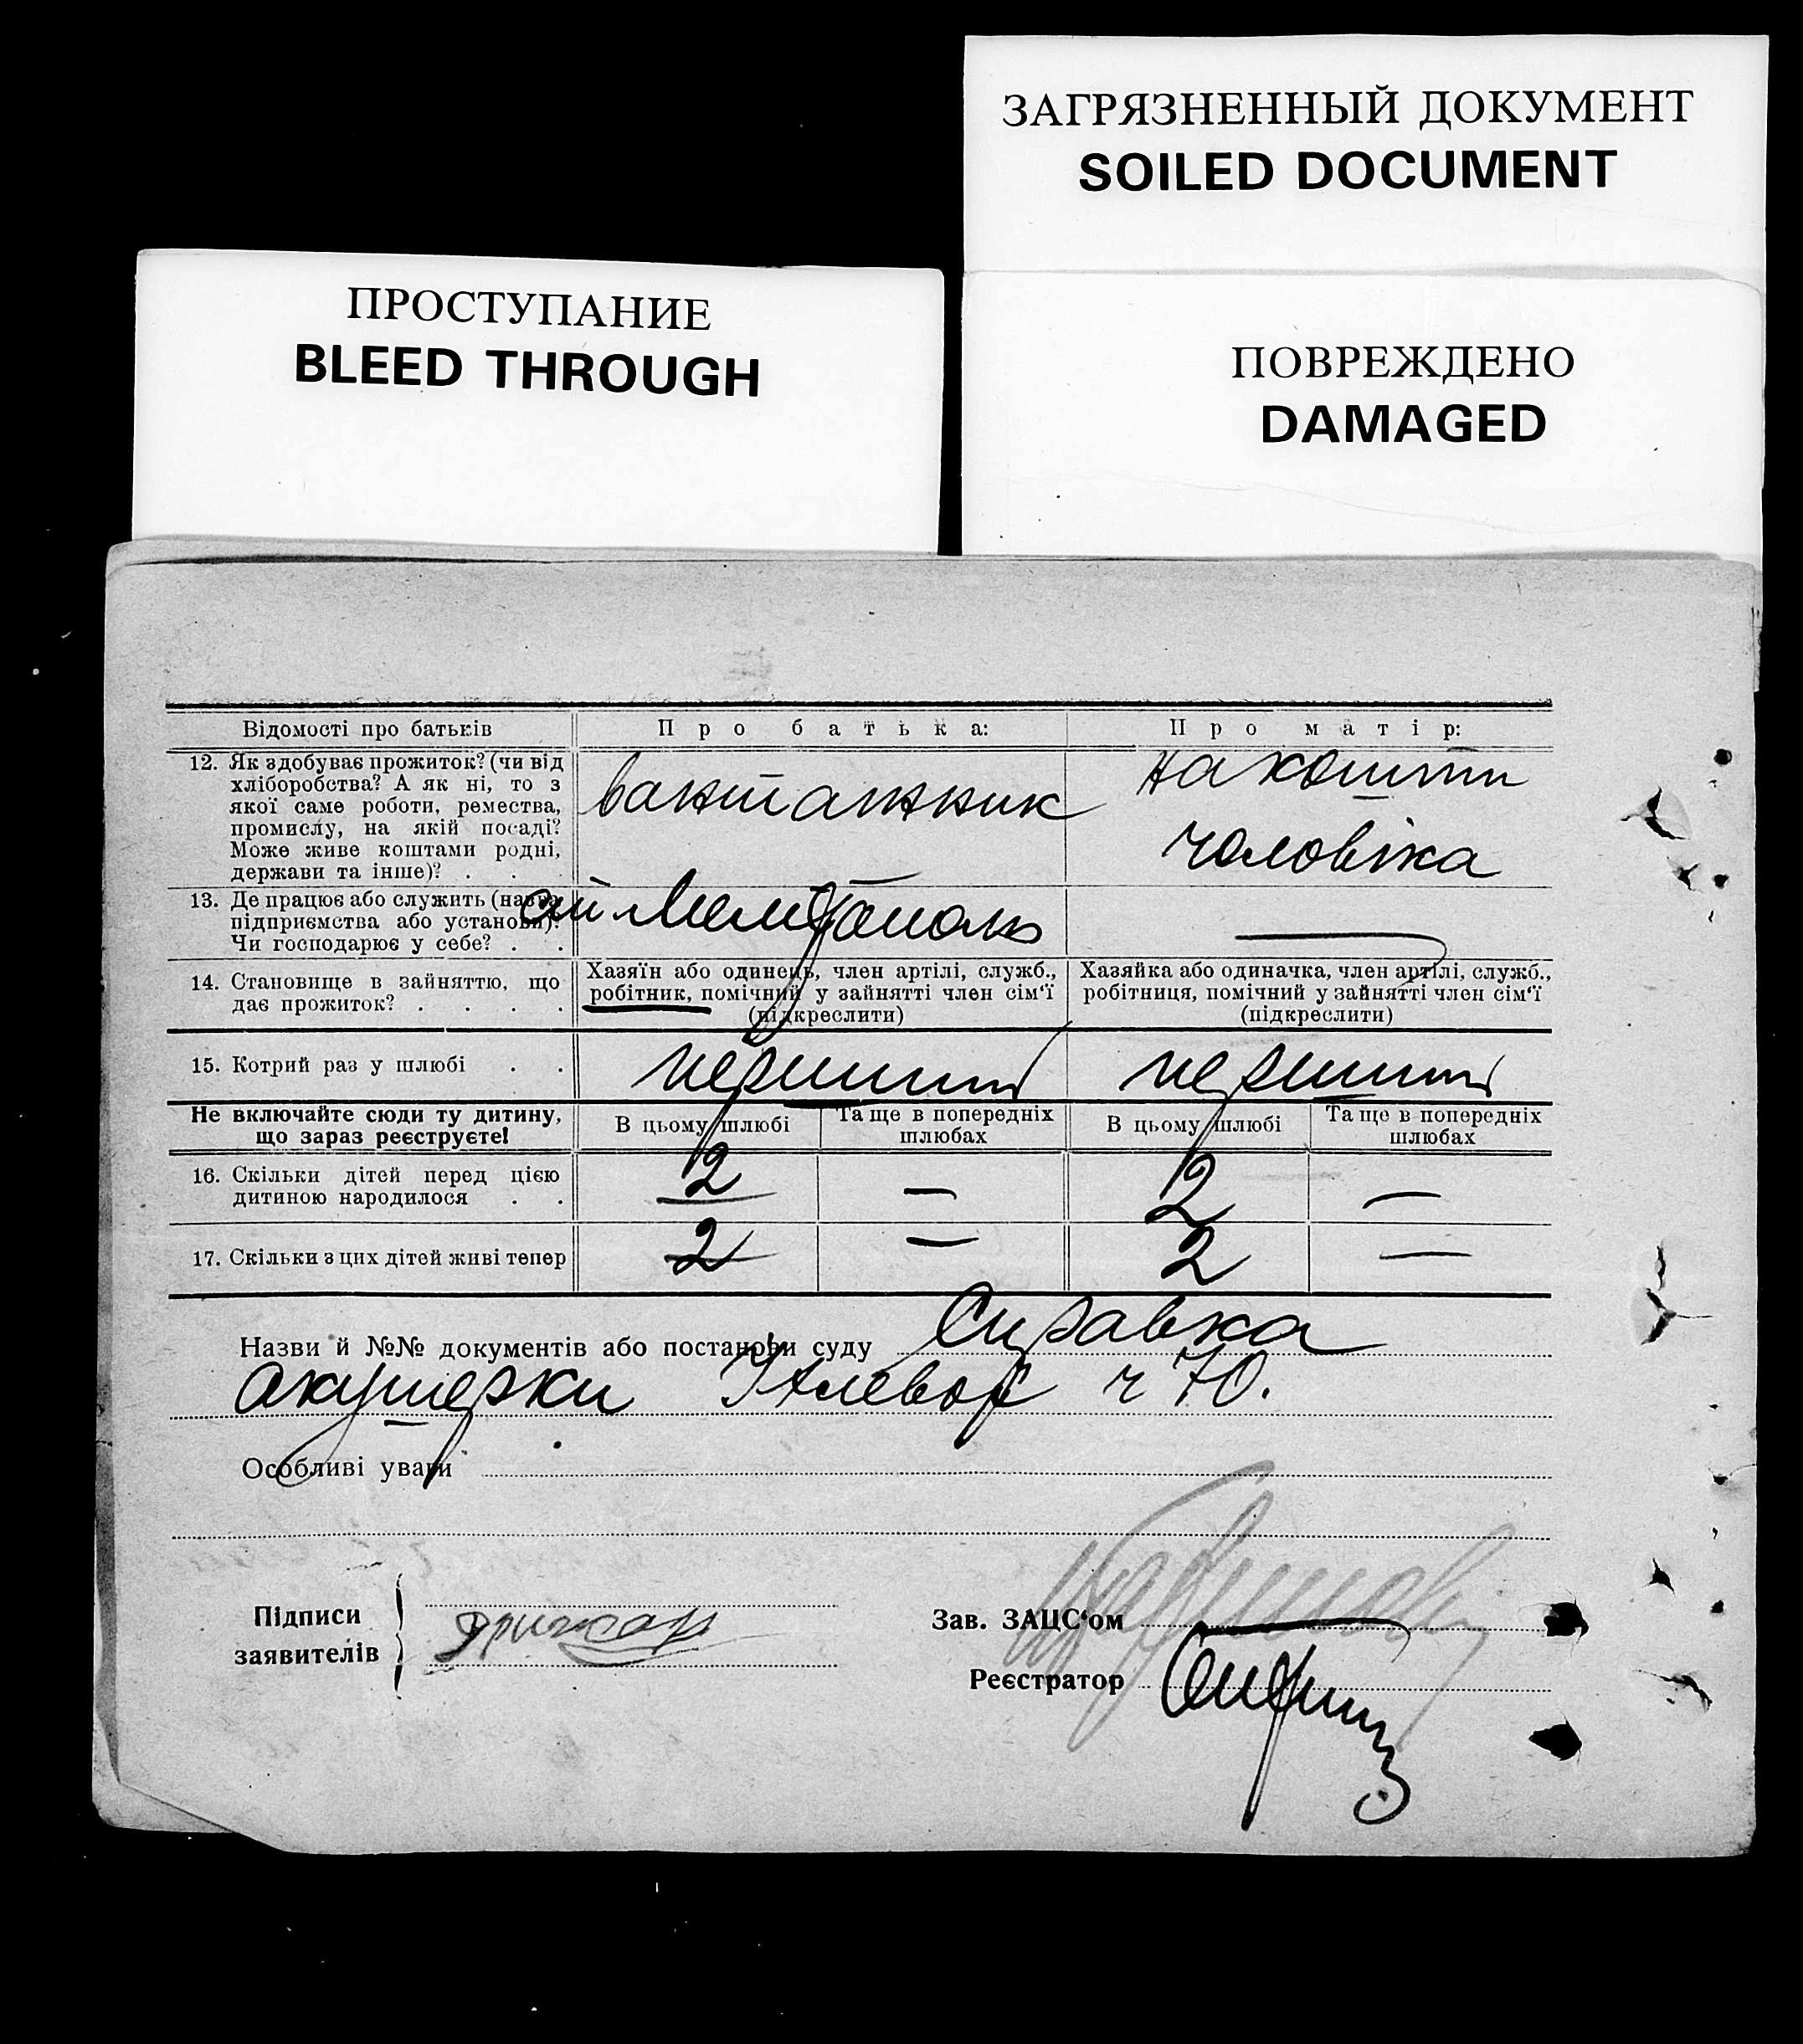 ЗАГРЯЗНЕННЫЙ ДОКУМЕНТ
SOILED DOCUMENT
ПРОСТУПАНИЕ
BLEED THROUGH
ПОВРЕЖДЕНО
DAMAGED
Відомості про батьків
Про батька:
Про матір:
12. Як здобуває прожиток? (чи від
хліборобства? А як ні, то з
якої саме роботи, ремества,
промислу, на якій посаді?
Може живе коштами родні,
держави та інше)? . . .
вантажник
на кошти
чоловіка
13. Де працює або служить (назва
підприємства або установи)?
Чи господарює у себе? . .
ст Мелітополь
—
14. Становище в зайняттю, що
дає прожиток? . . . .
Хазяїн або одинець, член артілі, служб.,
робітник, помічний у зайнятті член сім'ї
(підкреслити)
Хазяйка або одиначка, член артілі, служб.,
робітниця, помічний у зайнятті член сім'ї
(підкреслити)
15. Котрий раз у шлюбі . .
перший
перший
Не включайте сюди ту дитину,
що зараз реєструєте!
В цьому шлюбі
Та ще в попередніх
шлюбах
В цьому шлюбі
Та ще в попередніх
шлюбах
16. Скільки дітей перед цією
дитиною народилося . .
2 — 2 —
17. Скільки з цих дітей живі тепер
2 — 2 —
Назви й №№ документів або постанови суду Справка
акушерки ч 70.
Особливі уваги
Підписи
заявителів
Зав. ЗАЦС'ом
Реєстратор